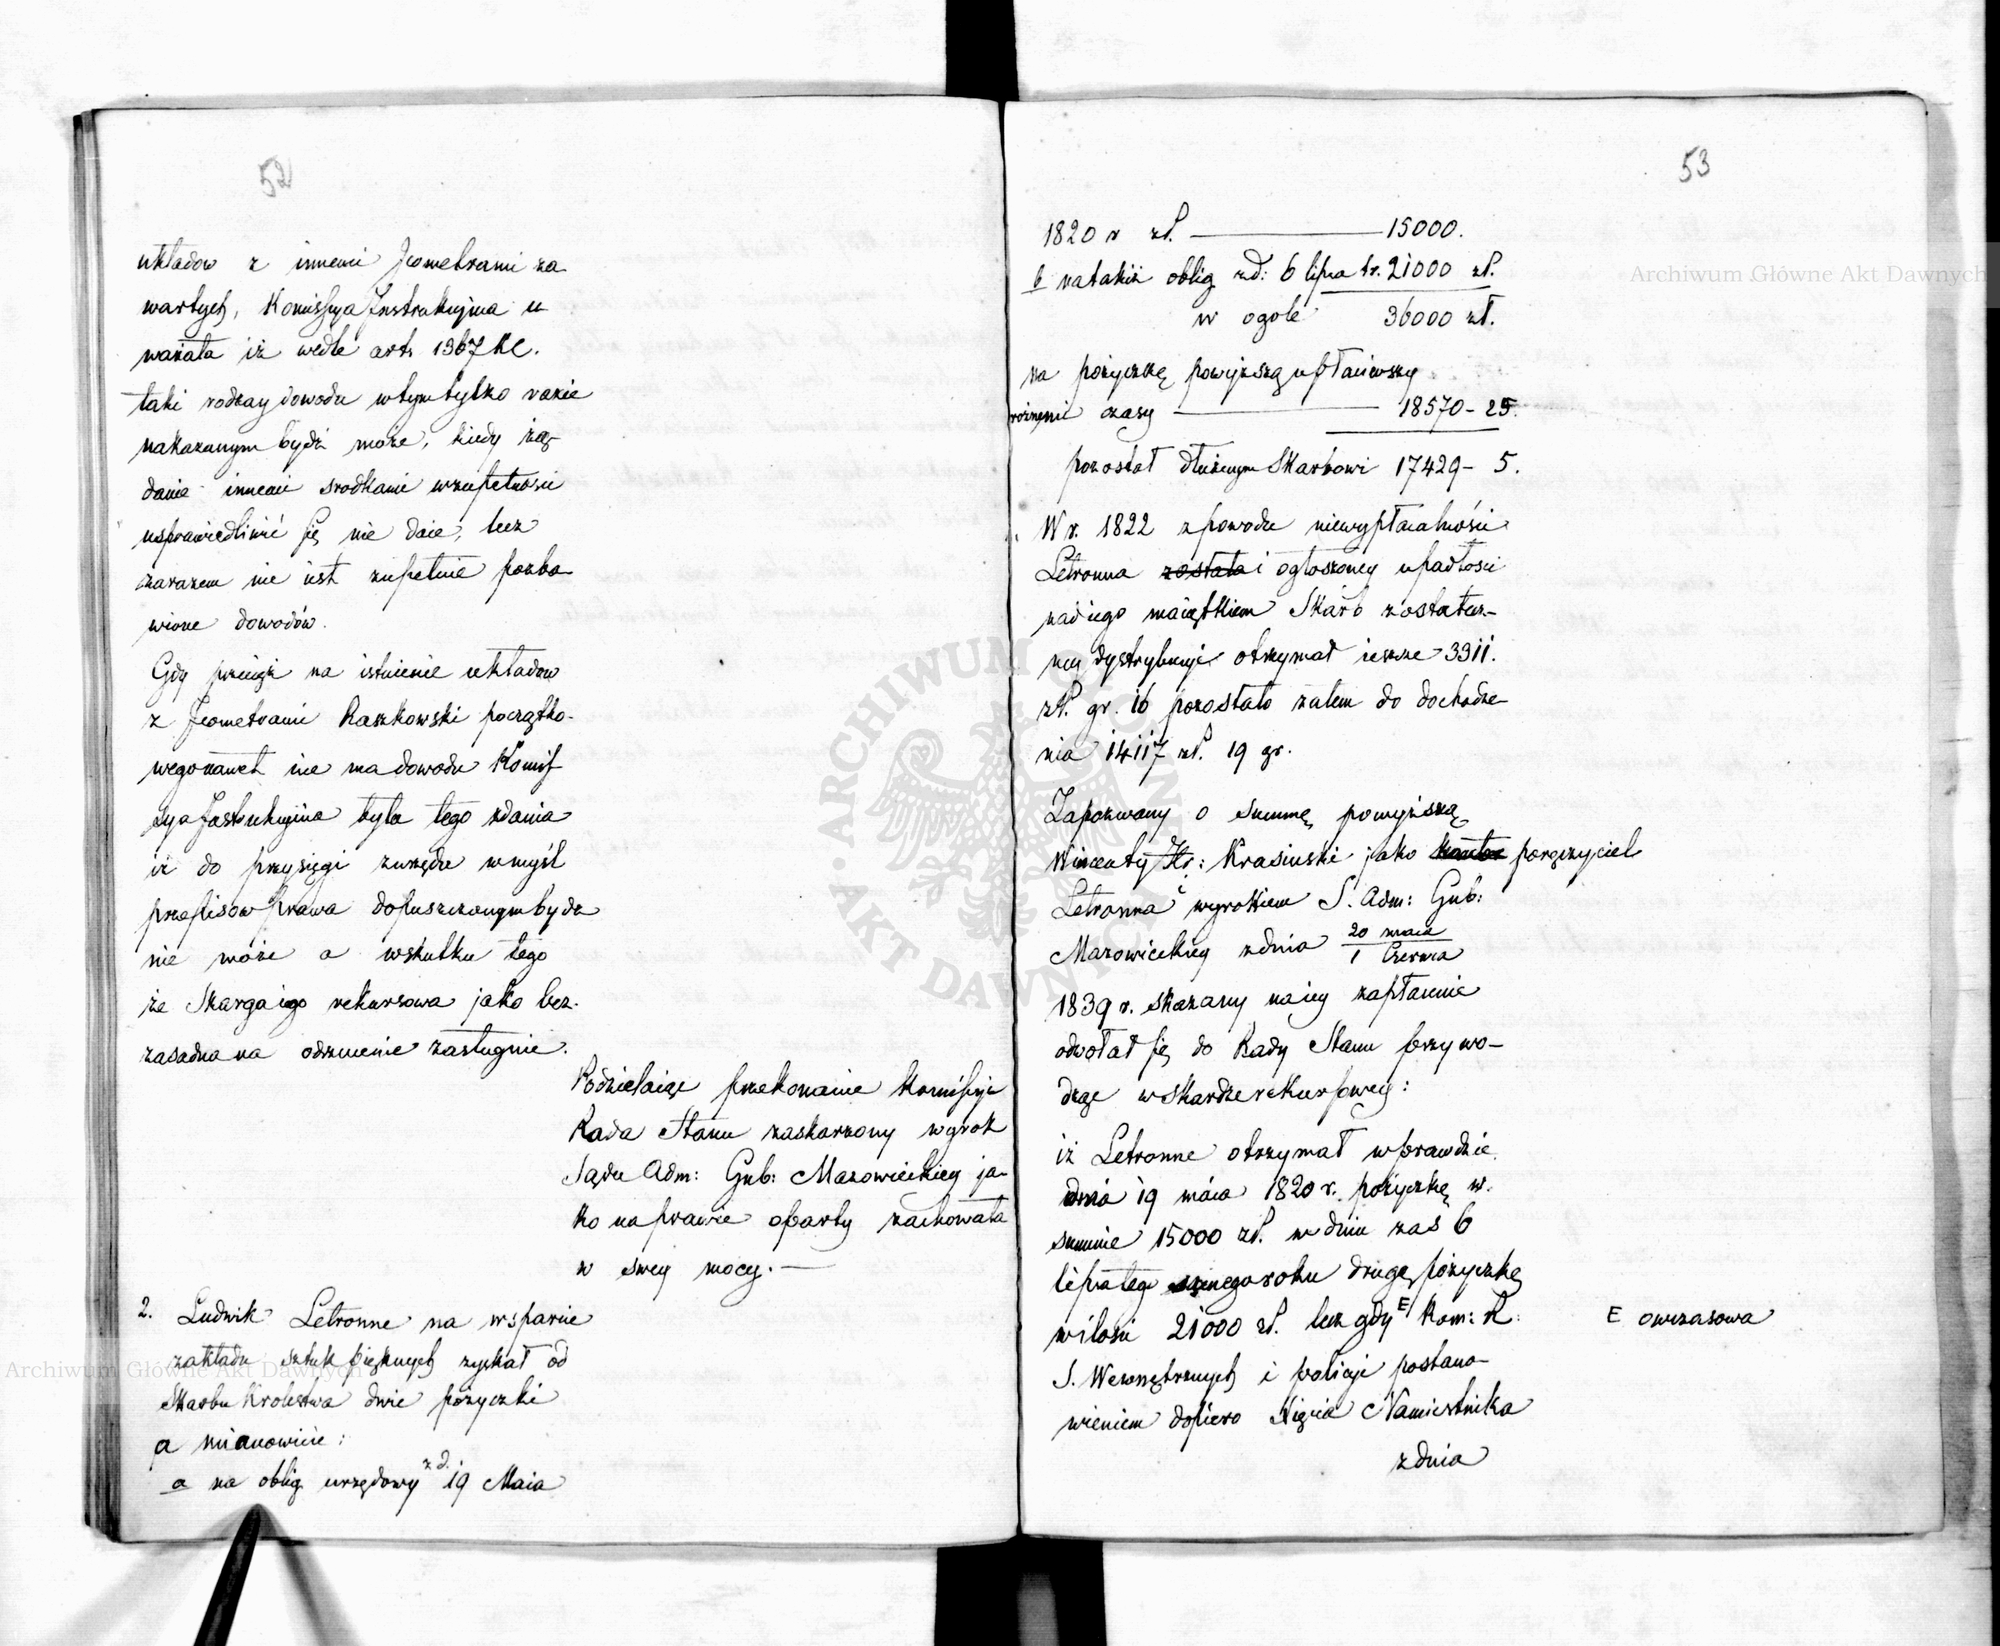 52
układow z innemi Jeometrami za
wartych, Kommissya Instrukcyjna u
ważała iż wedle art. 1367 KC.
taki rodzay dowodu w tym tylko razie
nakazanym bydź może, kiedy żą
danie innemi srodkami w zupełnosci
usprawiedliwić się nie daie, lecz
zarazem nie iest zupełnie pozba
wione dowodów.
Gdy przecięż na istnienie układow
z Jeometrami Raszkowski początko-
wego nawet nie ma dowodu Komis
sya Instrukcyjna była tego zdania
iż do przysięgi z urzędu w myśl
przepisow prawa dopuszczonym bydz
nie może a wskutku tego
że Skarga iego rekursowa jako bez-
zasadna na odrzucenie zasługuie.
Podzielaiąc przekonanie Komissyi
Rada Stanu zaskarzony wyrok
Sądu Adm: Gub: Mazowieckiey ja-
ko na prawie oparty zachowała
w swey mocy. —
2. Ludwik Letronne na wsparcie
zakładu sztuk pięknych zyskał od
Skarbu Krolestwa dwie pożyczki
a mianowicie:
a na oblig urzędowy z d. 19 Maia
53
1820 r zł. — 15000.
b na takiż oblig z d: 6 lipca t.r. 21000 zł.
w ogole 36000 zł.
na pożyczkę powyższą upłaciwszy
rożnemi czasy — 18570 - 25.
pozostał dłużnym Skarbowi 17429 - 5.
W r. 1822 z powodu niewypłacalności
Letronna została i ogłoszoney upadłosci
nad iego maiątkiem Skarb z ostatecz-
ney dystrybucyi otrzymał ieszcze 3311.
zł. gr. 16 pozostało zatem do dochodze
nia 14117 zł. 19 gr.
Zapozwany o summę powyższą
Wincenty Hr: Krasinski jako poręczyciel
Letronna wyrokiem S. Adm: Gub:
Mazowieckiey z dnia 20 maia / 1 Czerwca
1839 r. skazany na iey zapłacenie
odwołał się do Rady Stanu przywo-
dząc w skardze rekursowey:
iż Letronne otrzymał wprawdzie
dnia 19 maia 1820 r. pożyczkę w
summie 15000 zł. w dniu zas 6
lipca tegoż roku drugą pożyczkę
w ilosci 21000 zł. lecz gdy E Kom: R.
E owczasowa
S. Wewnętrznych i policyi postano-
wieniem dopiero Xięcia Namiestnika
z dnia
Archiwum Główne Akt Dawnych
Archiwum Główne Akt Dawnych
ARCHIWUM GŁÓWNE AKT DAWNYCH